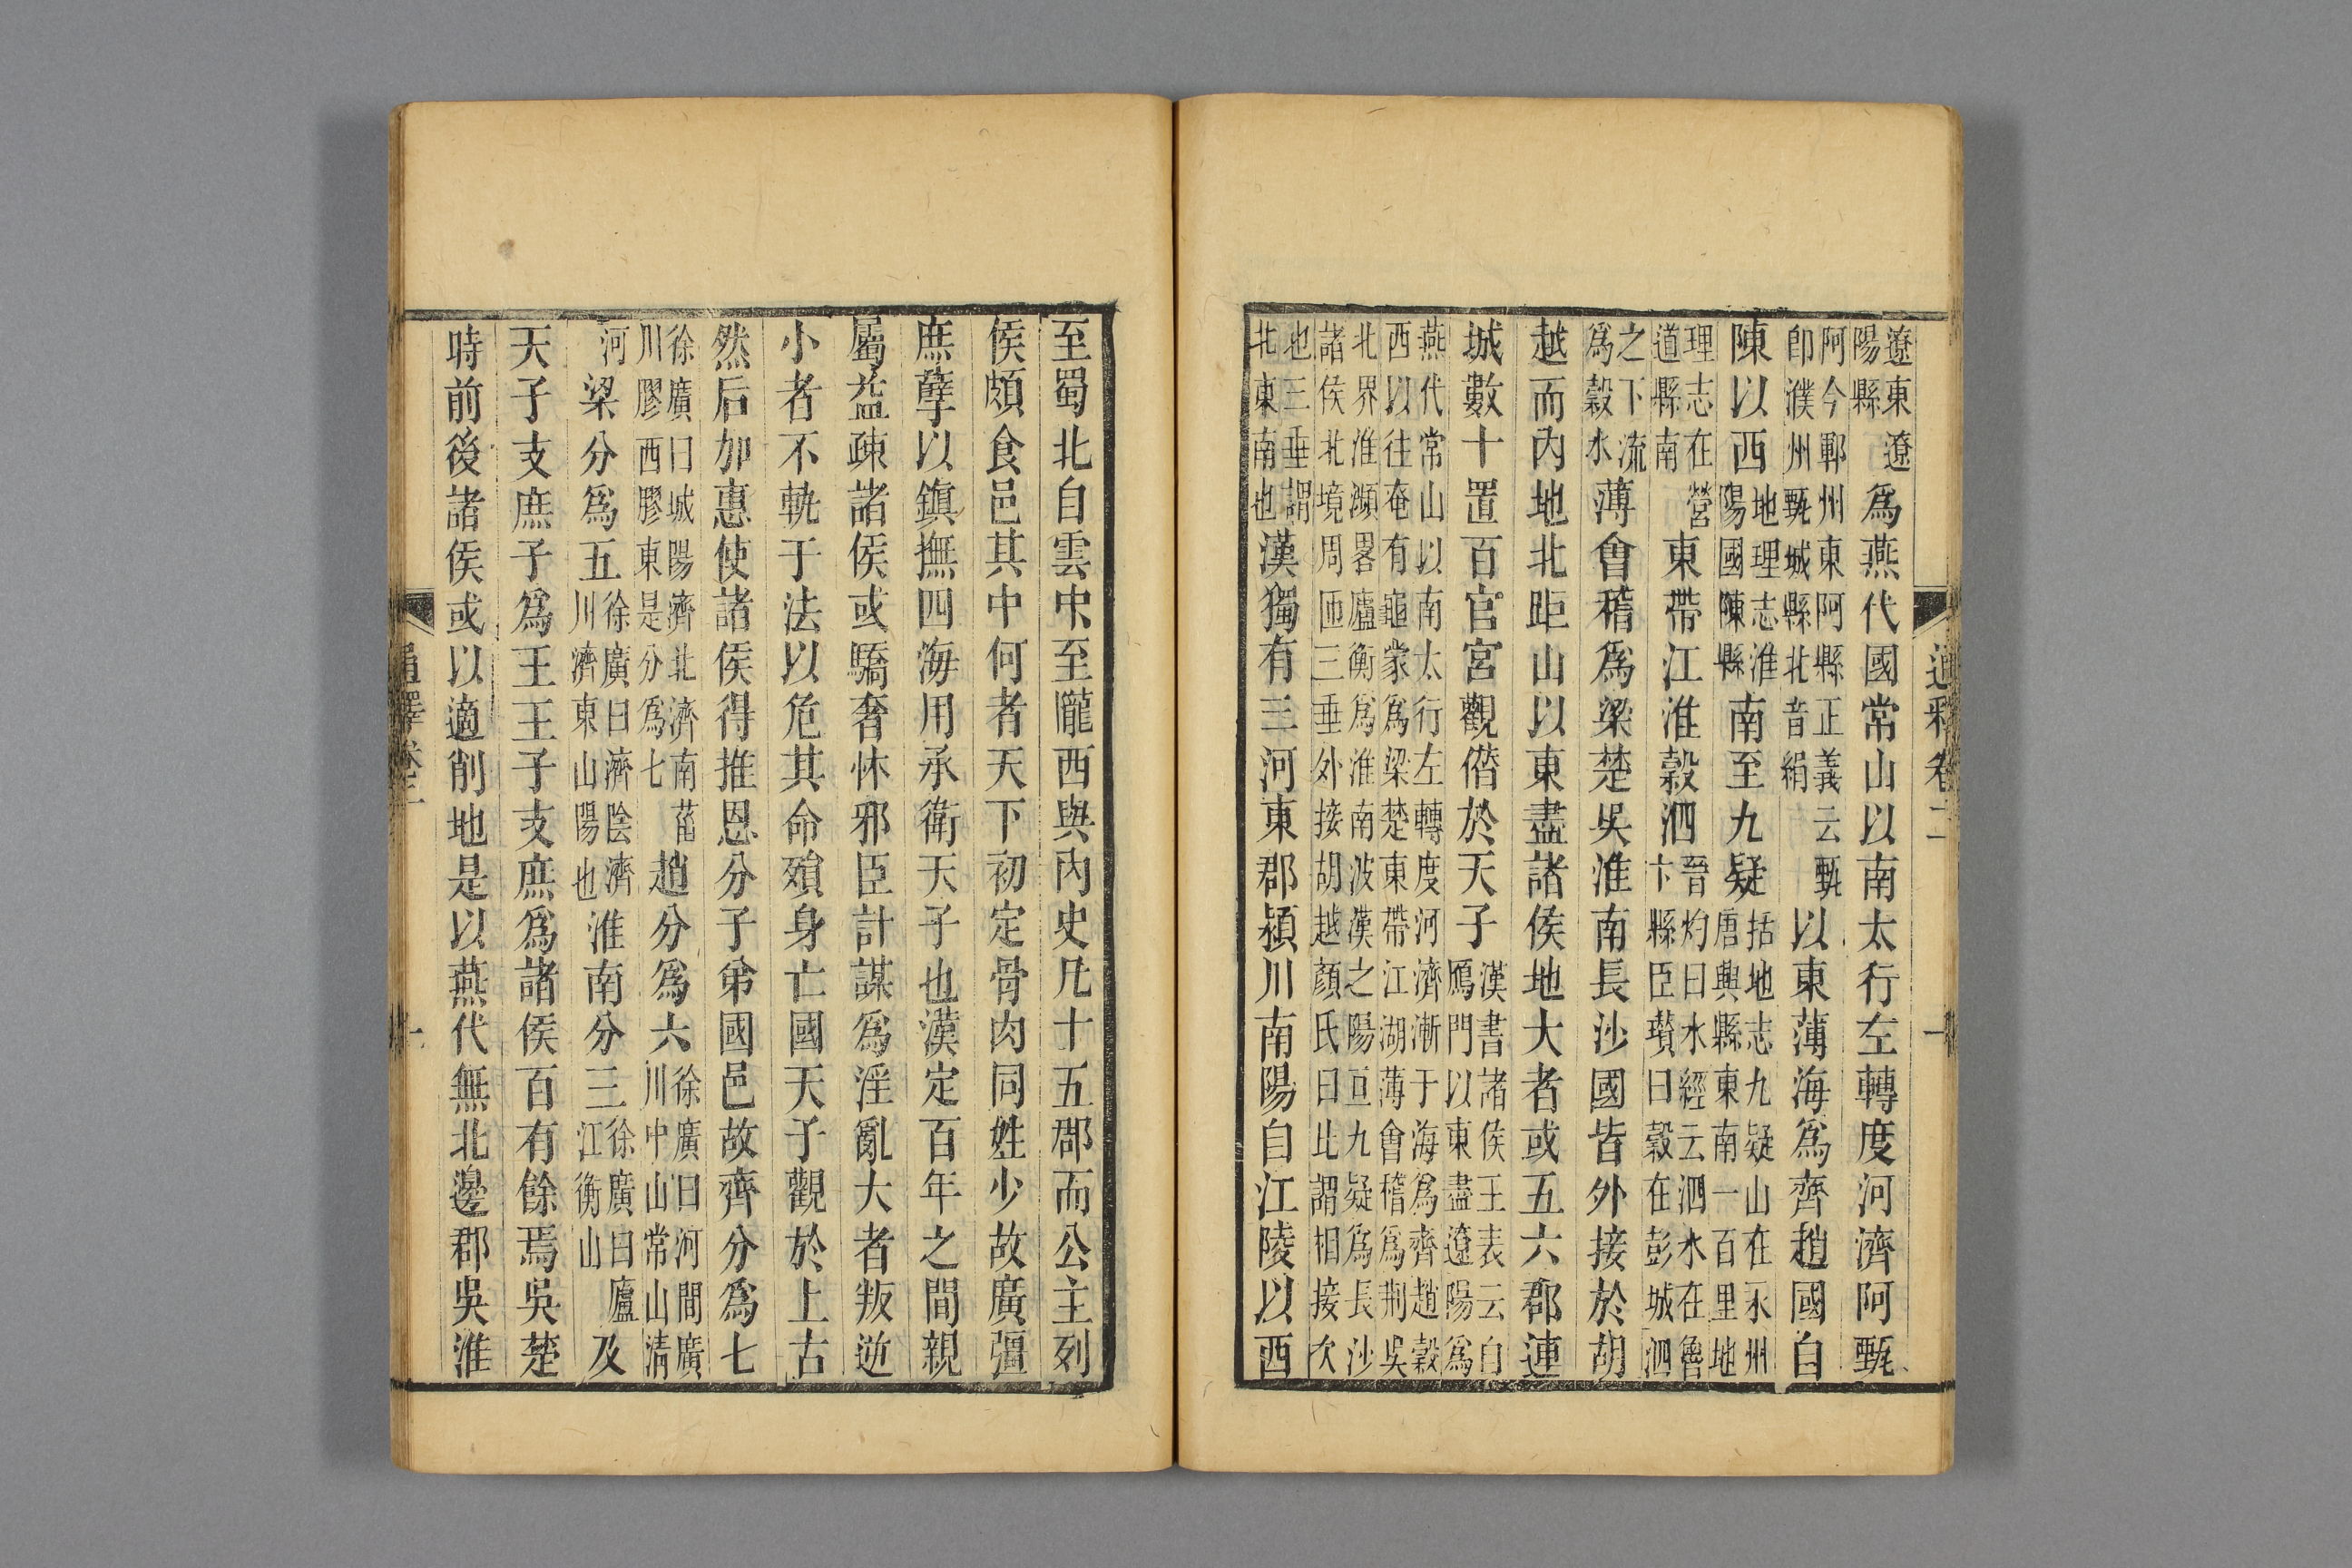 通釋卷二 一
遼東遼陽縣為燕代國常山以南太行左轉度河濟阿甄
阿今鄆州東阿縣正義云甄卽濮州甄城縣北音絹以東薄海爲齊趙國自
陳以西地理志淮陽國陳縣南至九疑括地志九疑山在永州唐興縣東南一百里地
理志在營道縣南東帶江淮穀泗晉灼曰水經云泗水在魯卞縣臣瓚曰穀在彭城泗
之下流爲穀水薄會稽爲梁楚吳淮南長沙國皆外接於胡
越而內地北距山以東盡諸侯地大者或五六郡連
城數十置百官宮觀僭於天子漢書諸侯王表云自鴈門以東盡遼陽爲
燕代常山以南太行左轉度河濟漸于海爲齊趙穀西以往奄有龜蒙爲梁楚東帶江湖薄會稽爲荆吳
北界淮瀕畧廬衡爲淮南波漢之陽亘九疑爲長沙諸侯北境周匝三垂外接胡越顏氏曰此謂相接次
也三垂謂北東南也漢獨有三河東郡潁川南陽自江陵以西
至蜀北自雲中至隴西與內史凡十五郡而公主列
侯頗食邑其中何者天下初定骨肉同姓少故廣彊
庶孽以鎭撫四海用承衛天子也漢定百年之間親
屬益疎諸侯或驕奢忕邪臣計謀爲淫亂大者叛逆
小者不軌于法以危其命殞身亡國天子觀於上古
然后加惠使諸侯得推恩分子弟國邑故齊分爲七
徐廣曰城陽濟北濟南菑川膠西膠東是分爲七趙分爲六徐廣曰河間廣川中山常山淸
河梁分爲五徐廣曰濟陰濟川濟東山陽也淮南分三徐廣曰廬江衡山及
天子支庶子爲王王子支庶爲諸侯百有餘焉吳楚
時前後諸侯或以適削地是以燕代無北邊郡吳淮
通釋卷二 一